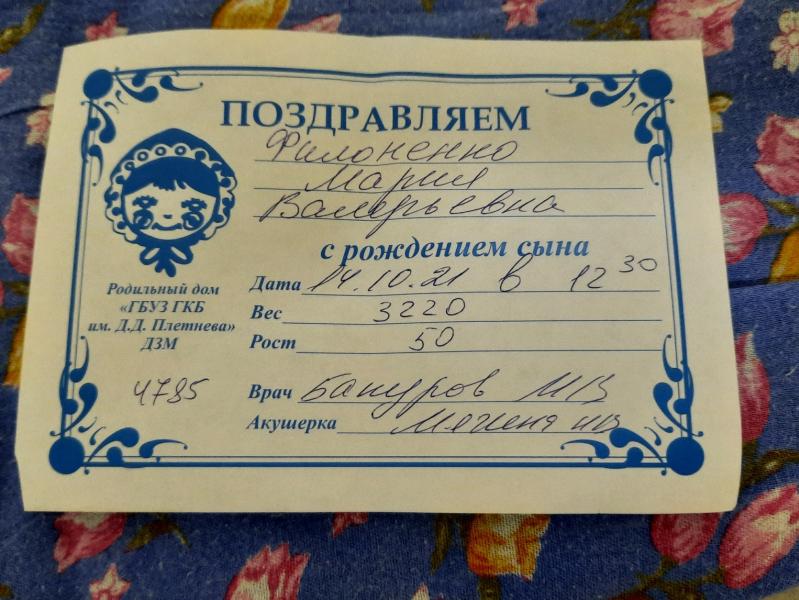 ПОЗДРАВЛЯЕМ
Филоненко
Мария
Валерьевна
с рождением сына
Дата 14.10.21 в 12 30
Вес 3220
Рост 50
Родильный дом
«ГБУЗ ГКБ
им. Д.Д. Плетнева»
ДЗМ
4785
Врач
Акушерка